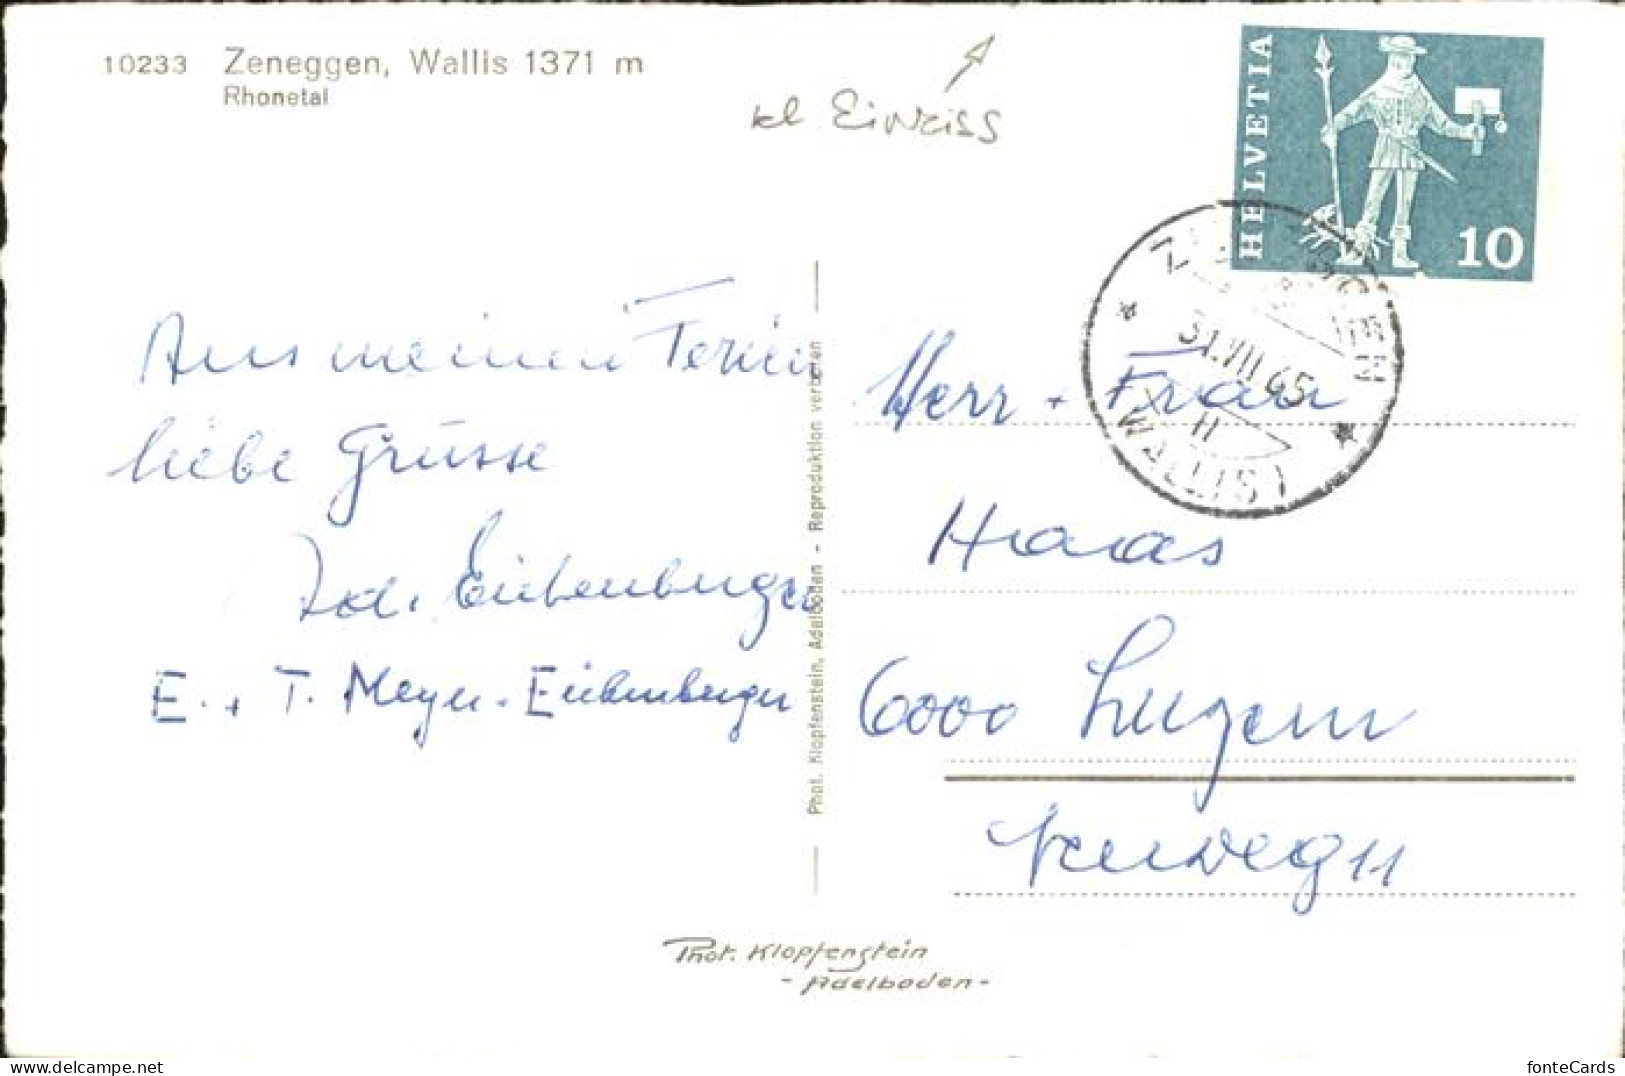 10233 Zeneggen, Wallis 1371 m
Rhonetal
kl. Einriss
HELVETIA
10
31.VII.65
WALLIS
Aus meinen Ferien
liebe Grüsse
Eichenberger
E. + T. Meyer-Eichenberger
Phot. Klopfenstein, Adelboden - Reproduktion verboten
Herr + Frau
Haas
6000 Luzern
Phot. Klopfenstein
- Adelboden -
fonteCards